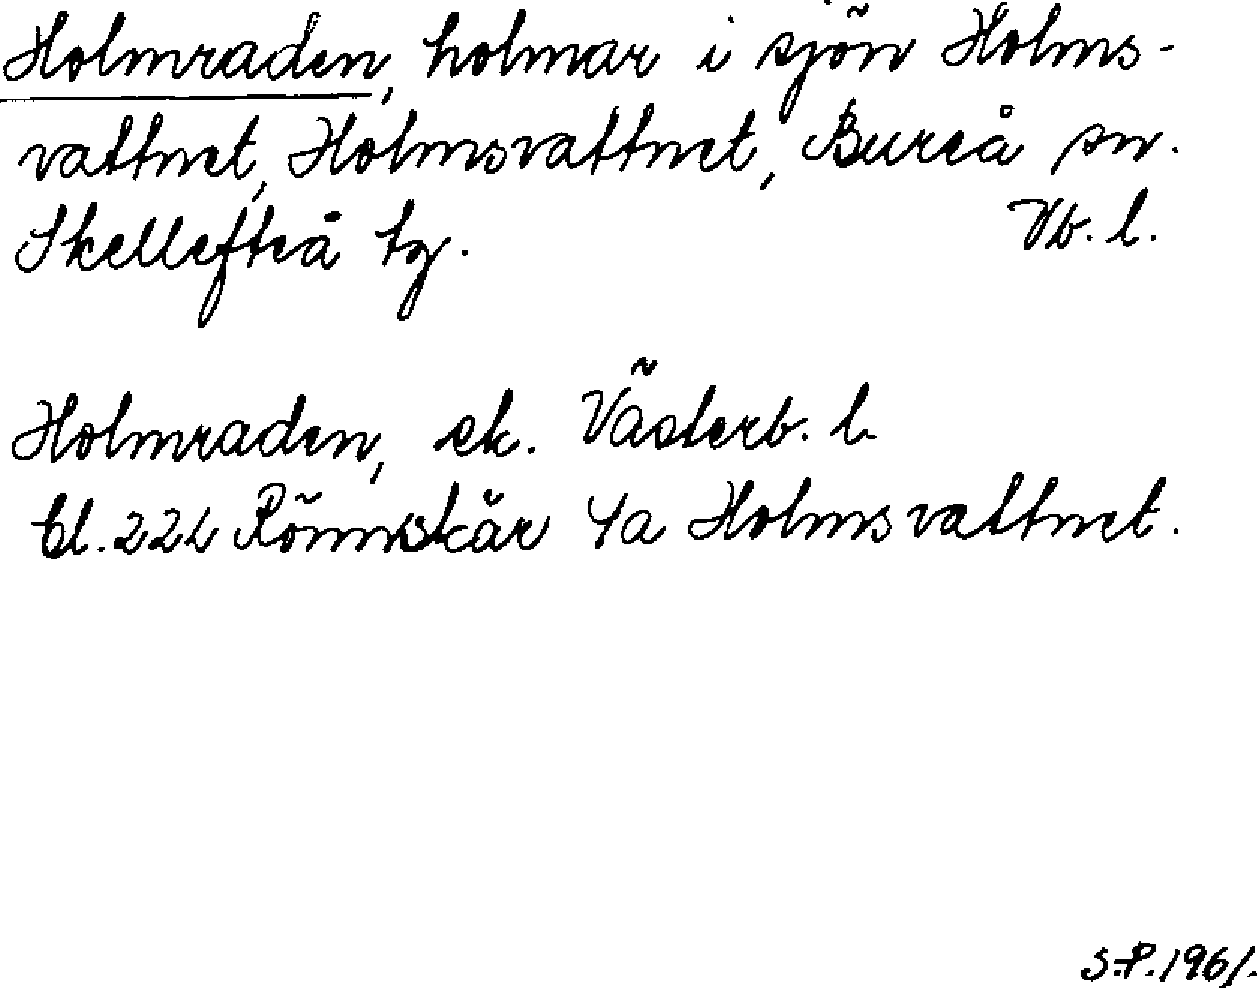 Holmraden, holmar i sjön Holms-
vattnet, Holmsvattnet, Bureå sn.
Skellefteå tg. Vb. l.
Holmraden, ek. Västerb. l.
bl. 22L Rönnskär 4a Holmsvattnet.
S.P. 1961.